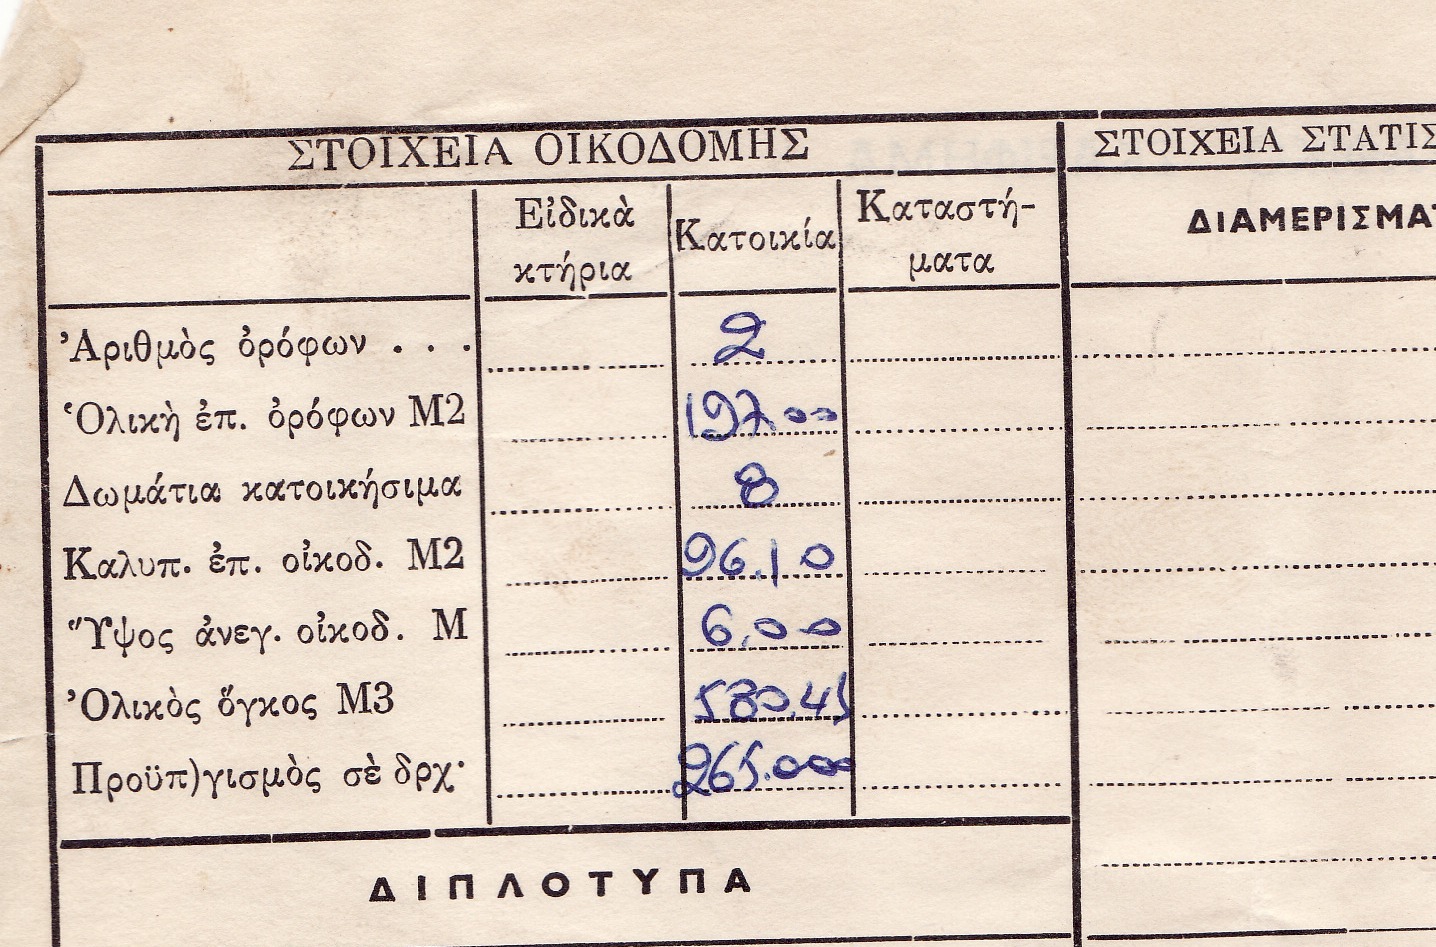 ΣΤΟΙΧΕΙΑ ΟΙΚΟΔΟΜΗΣ
ΣΤΟΙΧΕΙΑ ΣΤΑΤΙΣ
Εἰδικὰ κτήρια
Κατοικία
Καταστή-
ματα
ΔΙΑΜΕΡΙΣΜΑΤ
Ἀριθμὸς ὀρόφων . . . 2
Ὁλικὴ ἐπ. ὀρόφων Μ2 197.00
Δωμάτια κατοικήσιμα 8
Καλυπ. ἐπ. οἰκοδ. Μ2 96.10
Ὕψος ἀνεγ. οἰκοδ. Μ 6,00
Ὀλικὸς ὄγκος Μ3 580.45
Προϋπ)γισμὸς σὲ δρχ· 265.000
ΔΙΠΛΟΤΥΠΑ